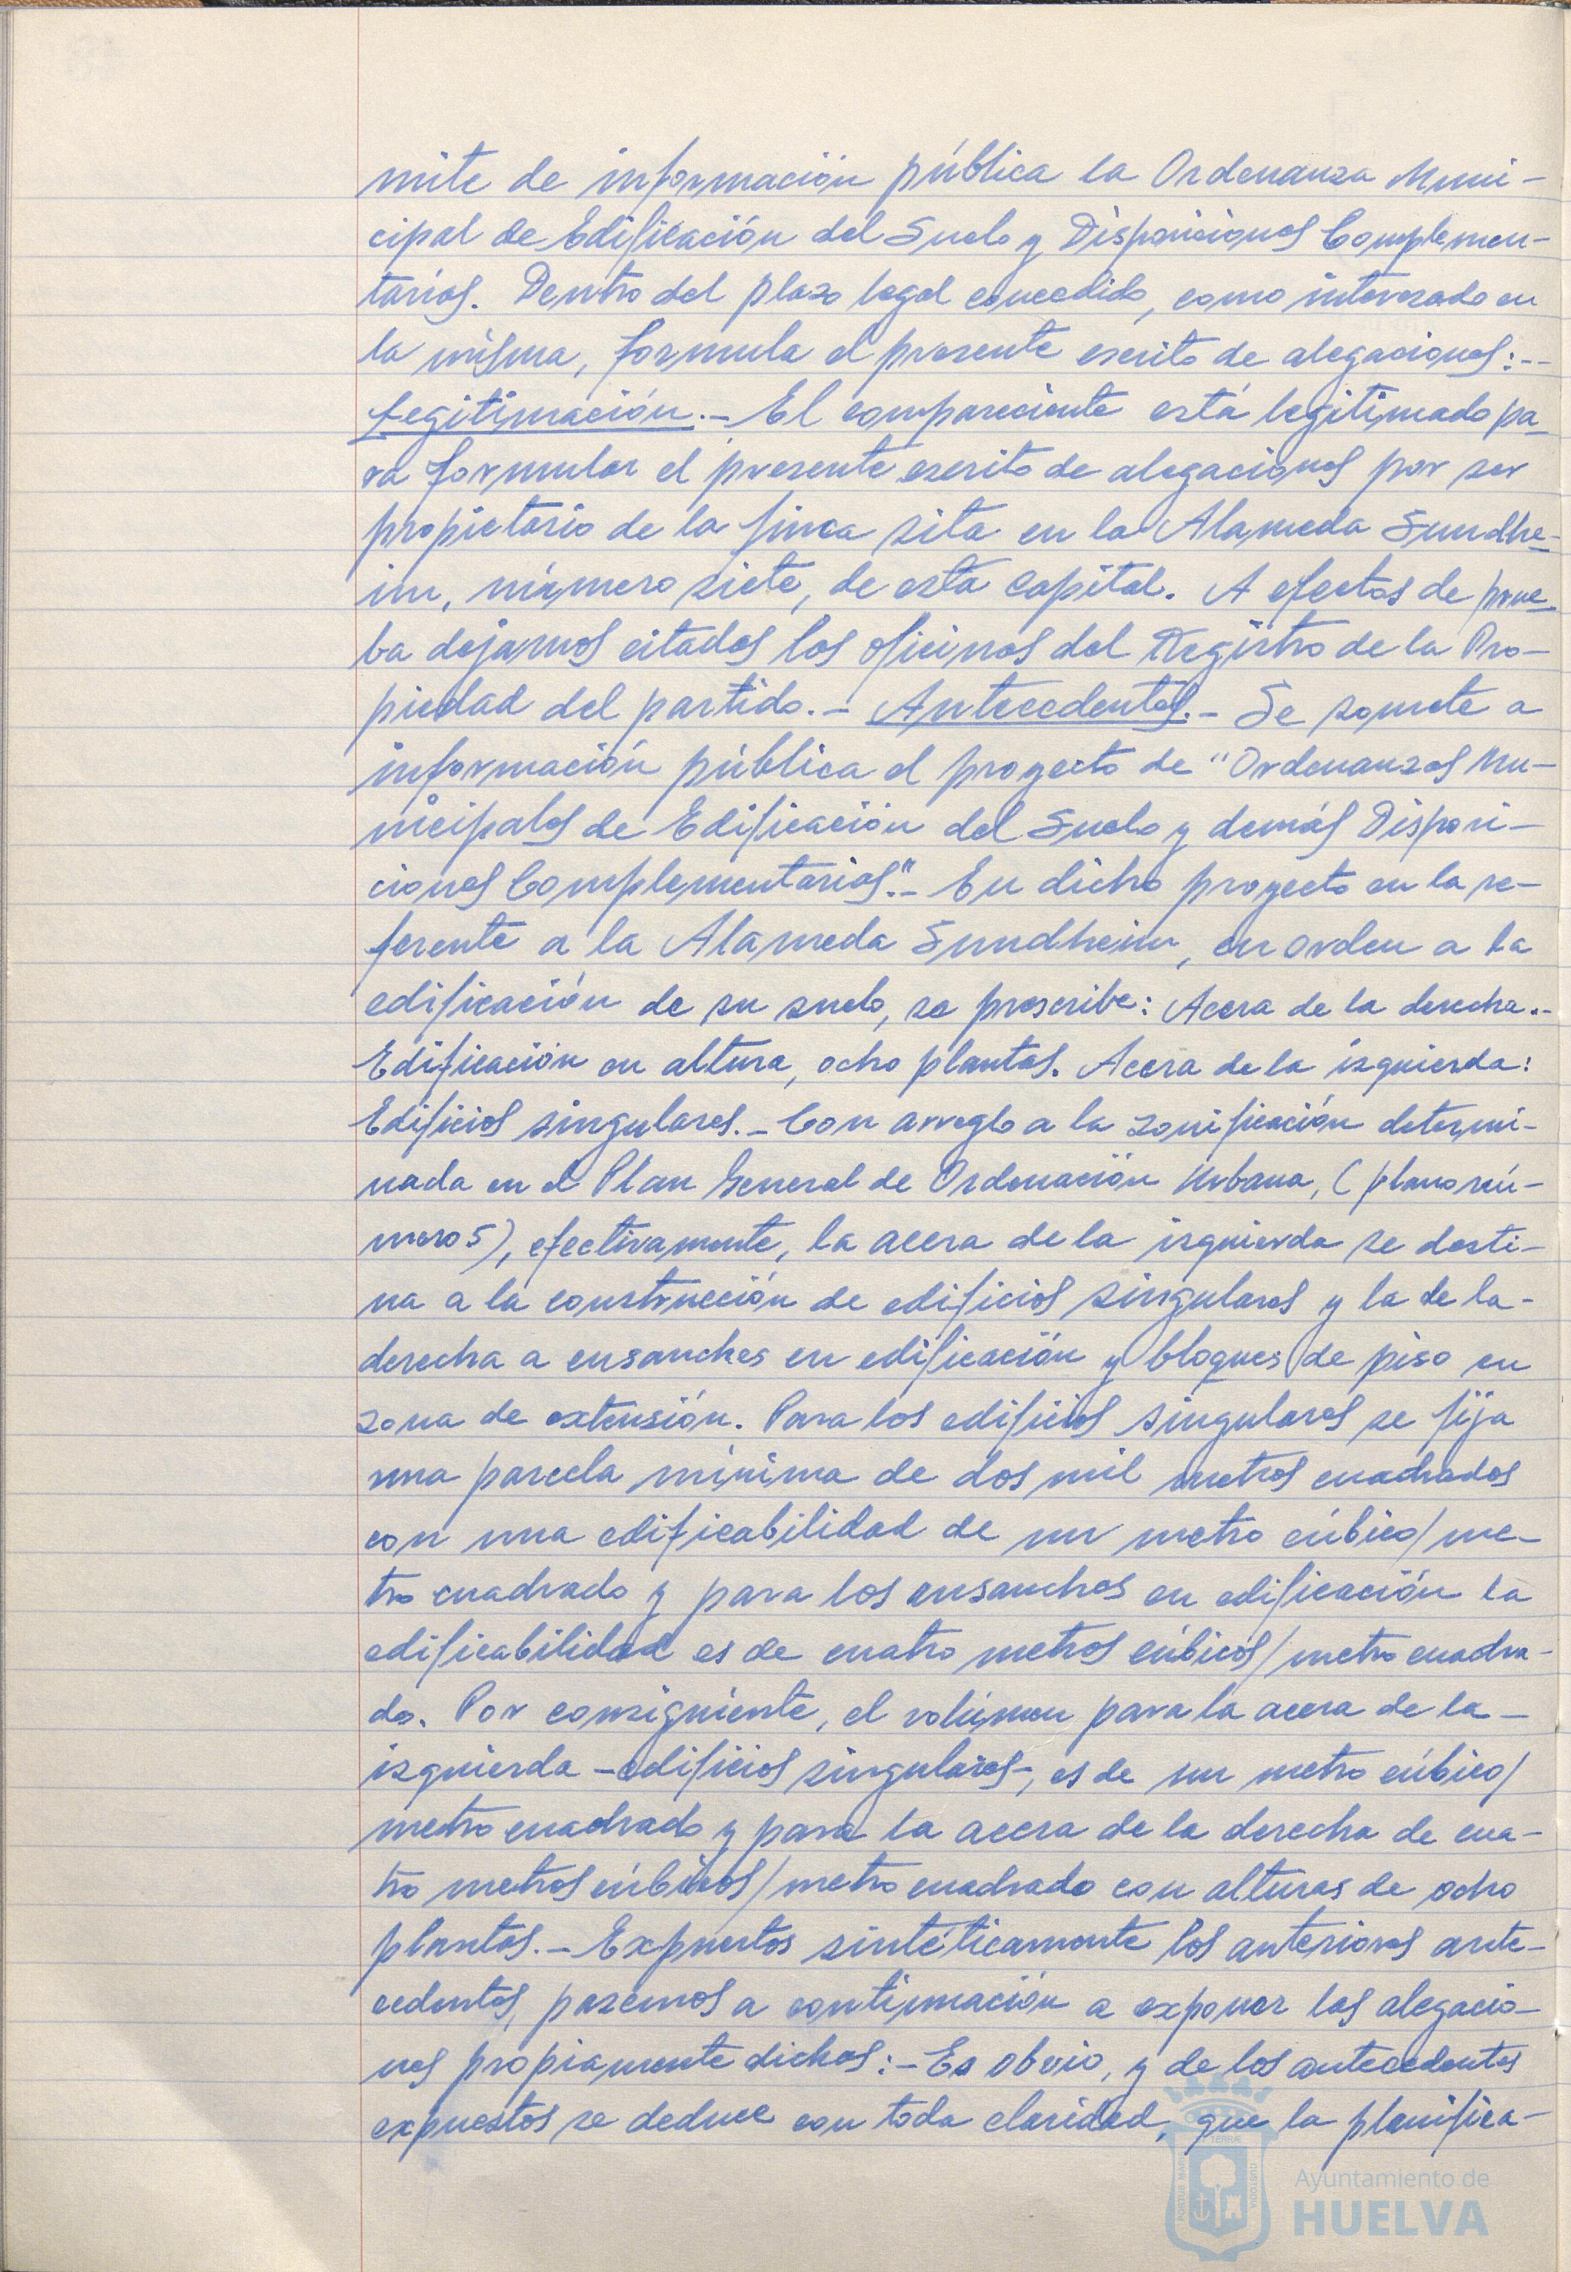 mite de información pública la Ordenanza Muni-
cipal de Edificación del Suelo y Disposiciones Complemen-
tarias. Dentro del plazo legal concedido, como interesado en
la misma, formula el presente escrito de alegaciones:--
Legitimación.- El compareciente está legitimado pa-
ra formular el presente escrito de alegaciones por ser
propietario de la finca sita en la Alameda Sundhe-
im, número siete, de esta Capital. A efectos de prue-
ba dejamos citadas las oficinas del Registro de la Pro-
piedad del partido.- Antecedentes.- Se somete a
información pública el proyecto de "Ordenanzas Mu-
nicipales de Edificación del Suelo y demás Disposi-
ciones Complementarias".- En dicho proyecto en la re-
ferente a la Alameda Sundheim, en orden a la
edificación de su suelo, se prescribe: Acera de la derecha.-
Edificación en altura, ocho plantas. Acera de la izquierda:
Edificios singulares.- Con arreglo a la zonificación determi-
nada en el Plan General de Ordenación Urbana, (plano nú-
mero 5), efectivamente, la acera de la izquierda se desti-
na a la construcción de edificios singulares y la de la-
derecha a ensanches en edificación y bloques de piso en
zona de extensión. Para los edificios singulares se fija
una parcela mínima de dos mil metros cuadrados
con una edificabilidad de un metro cúbico/me-
tro cuadrado y para los ensanches en edificación la
edificabilidad es de cuatro metros cúbicos/metro cuadra-
do. Por consiguiente, el volúmen para la acera de la-
izquierda -edificios singulares-, es de un metro cúbico/
metro cuadrado y para la acera de la derecha de cua-
tro metros cúbicos/metro cuadrado con alturas de ocho
plantas.- Expuestos sintéticamente los anteriores ante-
cedentes, pasemos a continuación a exponer las alegacio-
nes propiamente dichas:- Es obvio, y de los antecedentes
expuestos se deduce con toda claridad, que la planifica-
Ayuntamiento de
HUELVA